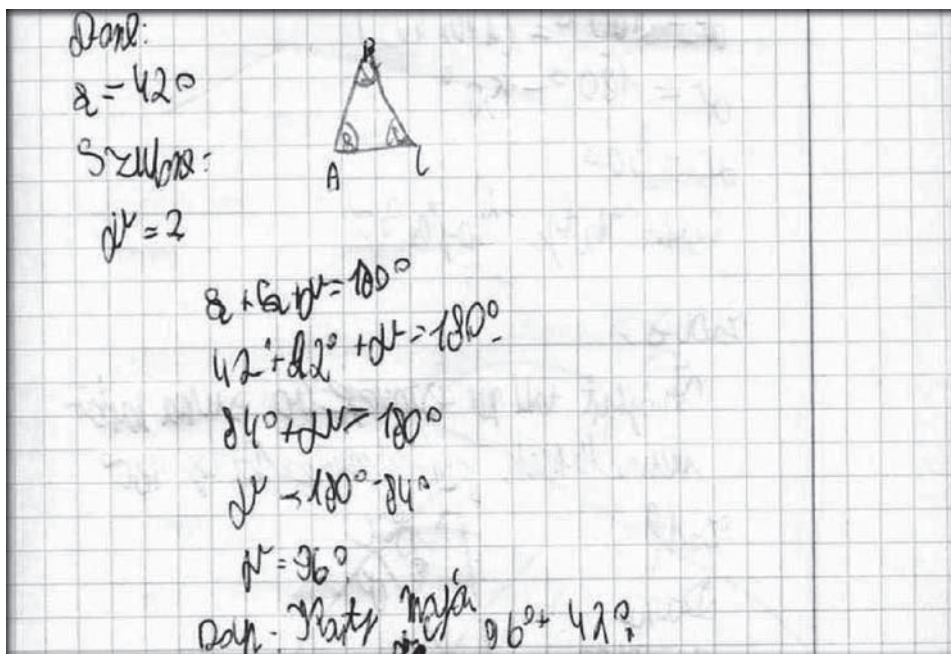 Dane:
α = 42°
B
Szukane:
A C
γ = ?
α + α + γ = 180°
42° + 42° + γ = 180°
84° + γ = 180°
γ = 180° - 84°
γ = 96°
Odp: Kąty mają 96° + 42°.